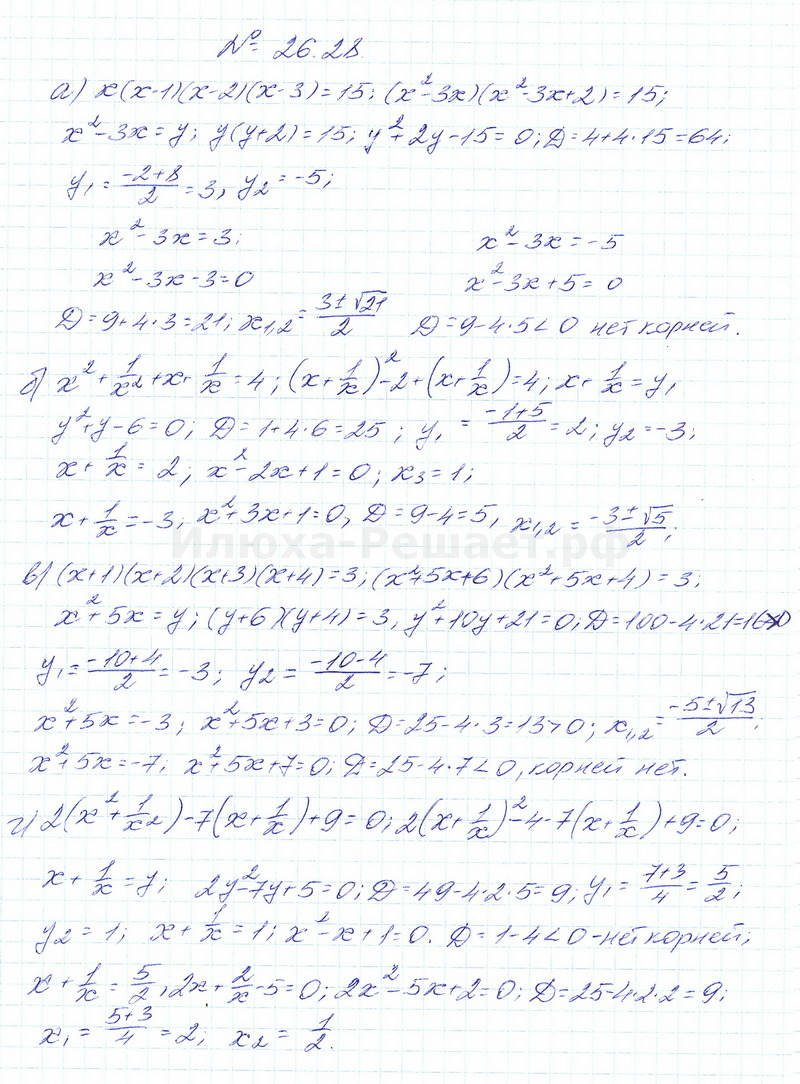 № 26.28.
а) x(x-1)(x-2)(x-3)=15; (x²-3x)(x²-3x+2)=15;
x²-3x=y; y(y+2)=15; y²+2y-15=0; D=4+4·15=64;
y₁=(-2+8)/2=3, y₂=-5;
x²-3x=3; x²-3x=-5
x²-3x-3=0 x²-3x+5=0
D=9+4·3=21; x₁,₂=(3±√21)/2 D=9-4·5<0 нет корней.
б) x²+1/x²+x+1/x=4; (x+1/x)²-2+(x+1/x)=4; x+1/x=y,
y²+y-6=0; D=1+4·6=25; y₁=(-1+5)/2=2; y₂=-3;
x+1/x=2; x²-2x+1=0; x₃=1;
x+1/x=-3; x²+3x+1=0, D=9-4=5, x₁,₂=(-3±√5)/2;
Илюха-Решает.рф
в) (x+1)(x+2)(x+3)(x+4)=3; (x²+5x+6)(x²+5x+4)=3;
x²+5x=y; (y+6)(y+4)=3, y²+10y+21=0; D=100-4·21=16>0
y₁=(-10+4)/2=-3; y₂=(-10-4)/2=-7;
x²+5x=-3; x²+5x+3=0; D=25-4·3=13>0; x₁,₂=(-5±√13)/2;
x²+5x=-7; x²+5x+7=0; D=25-4·7<0, корней нет.
г) 2(x²+1/x²)-7(x+1/x)+9=0; 2(x+1/x)²-4-7(x+1/x)+9=0;
x+1/x=y; 2y²-7y+5=0; D=49-4·2·5=9; y₁=(7+3)/4=5/2;
y₂=1; x+1/x=1; x²-x+1=0. D=1-4<0-нет корней;
x+1/x=5/2, 2x+2/x-5=0; 2x²-5x+2=0; D=25-4·2·2=9;
x₁=(5+3)/4=2; x₂=1/2.